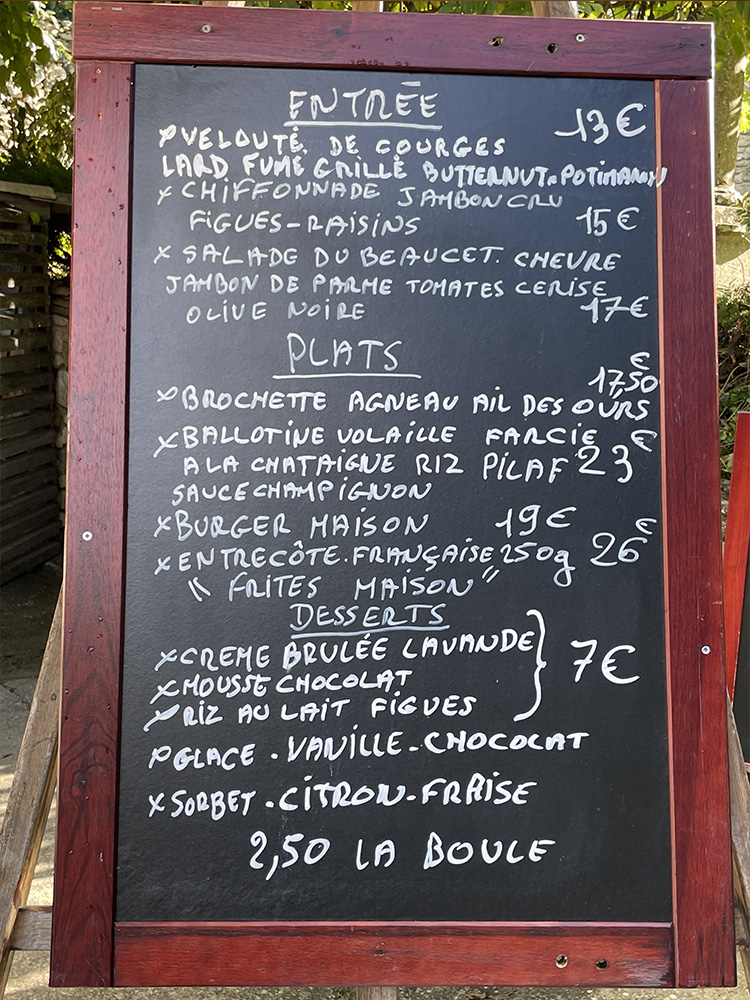 ENTRÉE
x VELOUTÉ DE COURGES 13€
LARD FUMÉ GRILLÉ BUTTERNUT. POTIMARON
x CHIFFONNADE JAMBON CRU
FIGUES-RAISINS 15€
x SALADE DU BEAUCET. CHEVRE
JAMBON DE PARME TOMATES CERISE
OLIVE NOIRE 17€
PLATS
17,50€
x BROCHETTE AGNEAU AIL DES OURS
x BALLOTINE VOLAILLE FARCIE
A LA CHATAIGNE RIZ PILAF 23€
SAUCE CHAMPIGNON
x BURGER MAISON 19€
x ENTRECÔTE. FRANÇAISE 250g 26€
"FRITES MAISON"
DESSERTS
x CREME BRULÉE LAVANDE
x MOUSSE CHOCOLAT 7€
x RIZ AU LAIT FIGUES
x GLACE . VANILLE - CHOCOLAT
x SORBET . CITRON - FRAISE
2,50 LA BOULE